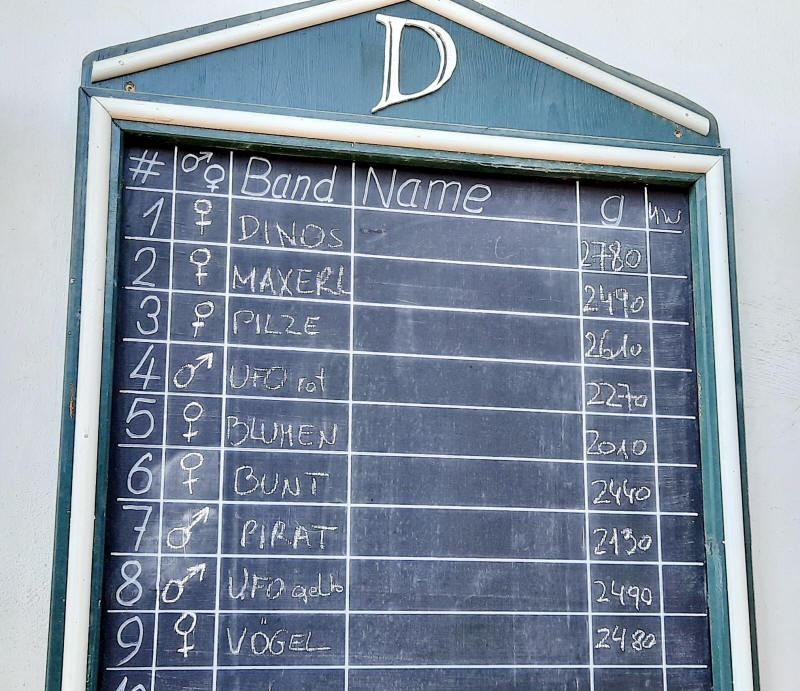 D
# ♂♀ Band Name g UW
1 ♀ DINOS 2780
2 ♀ MAXERL 2490
3 ♀ PILZE 2610
4 ♂ UFO rot 2270
5 ♀ BLUMEN 2010
6 ♀ BUNT 2440
7 ♂ PIRAT 2130
8 ♂ UFO gelb 2490
9 ♀ VÖGEL 2480